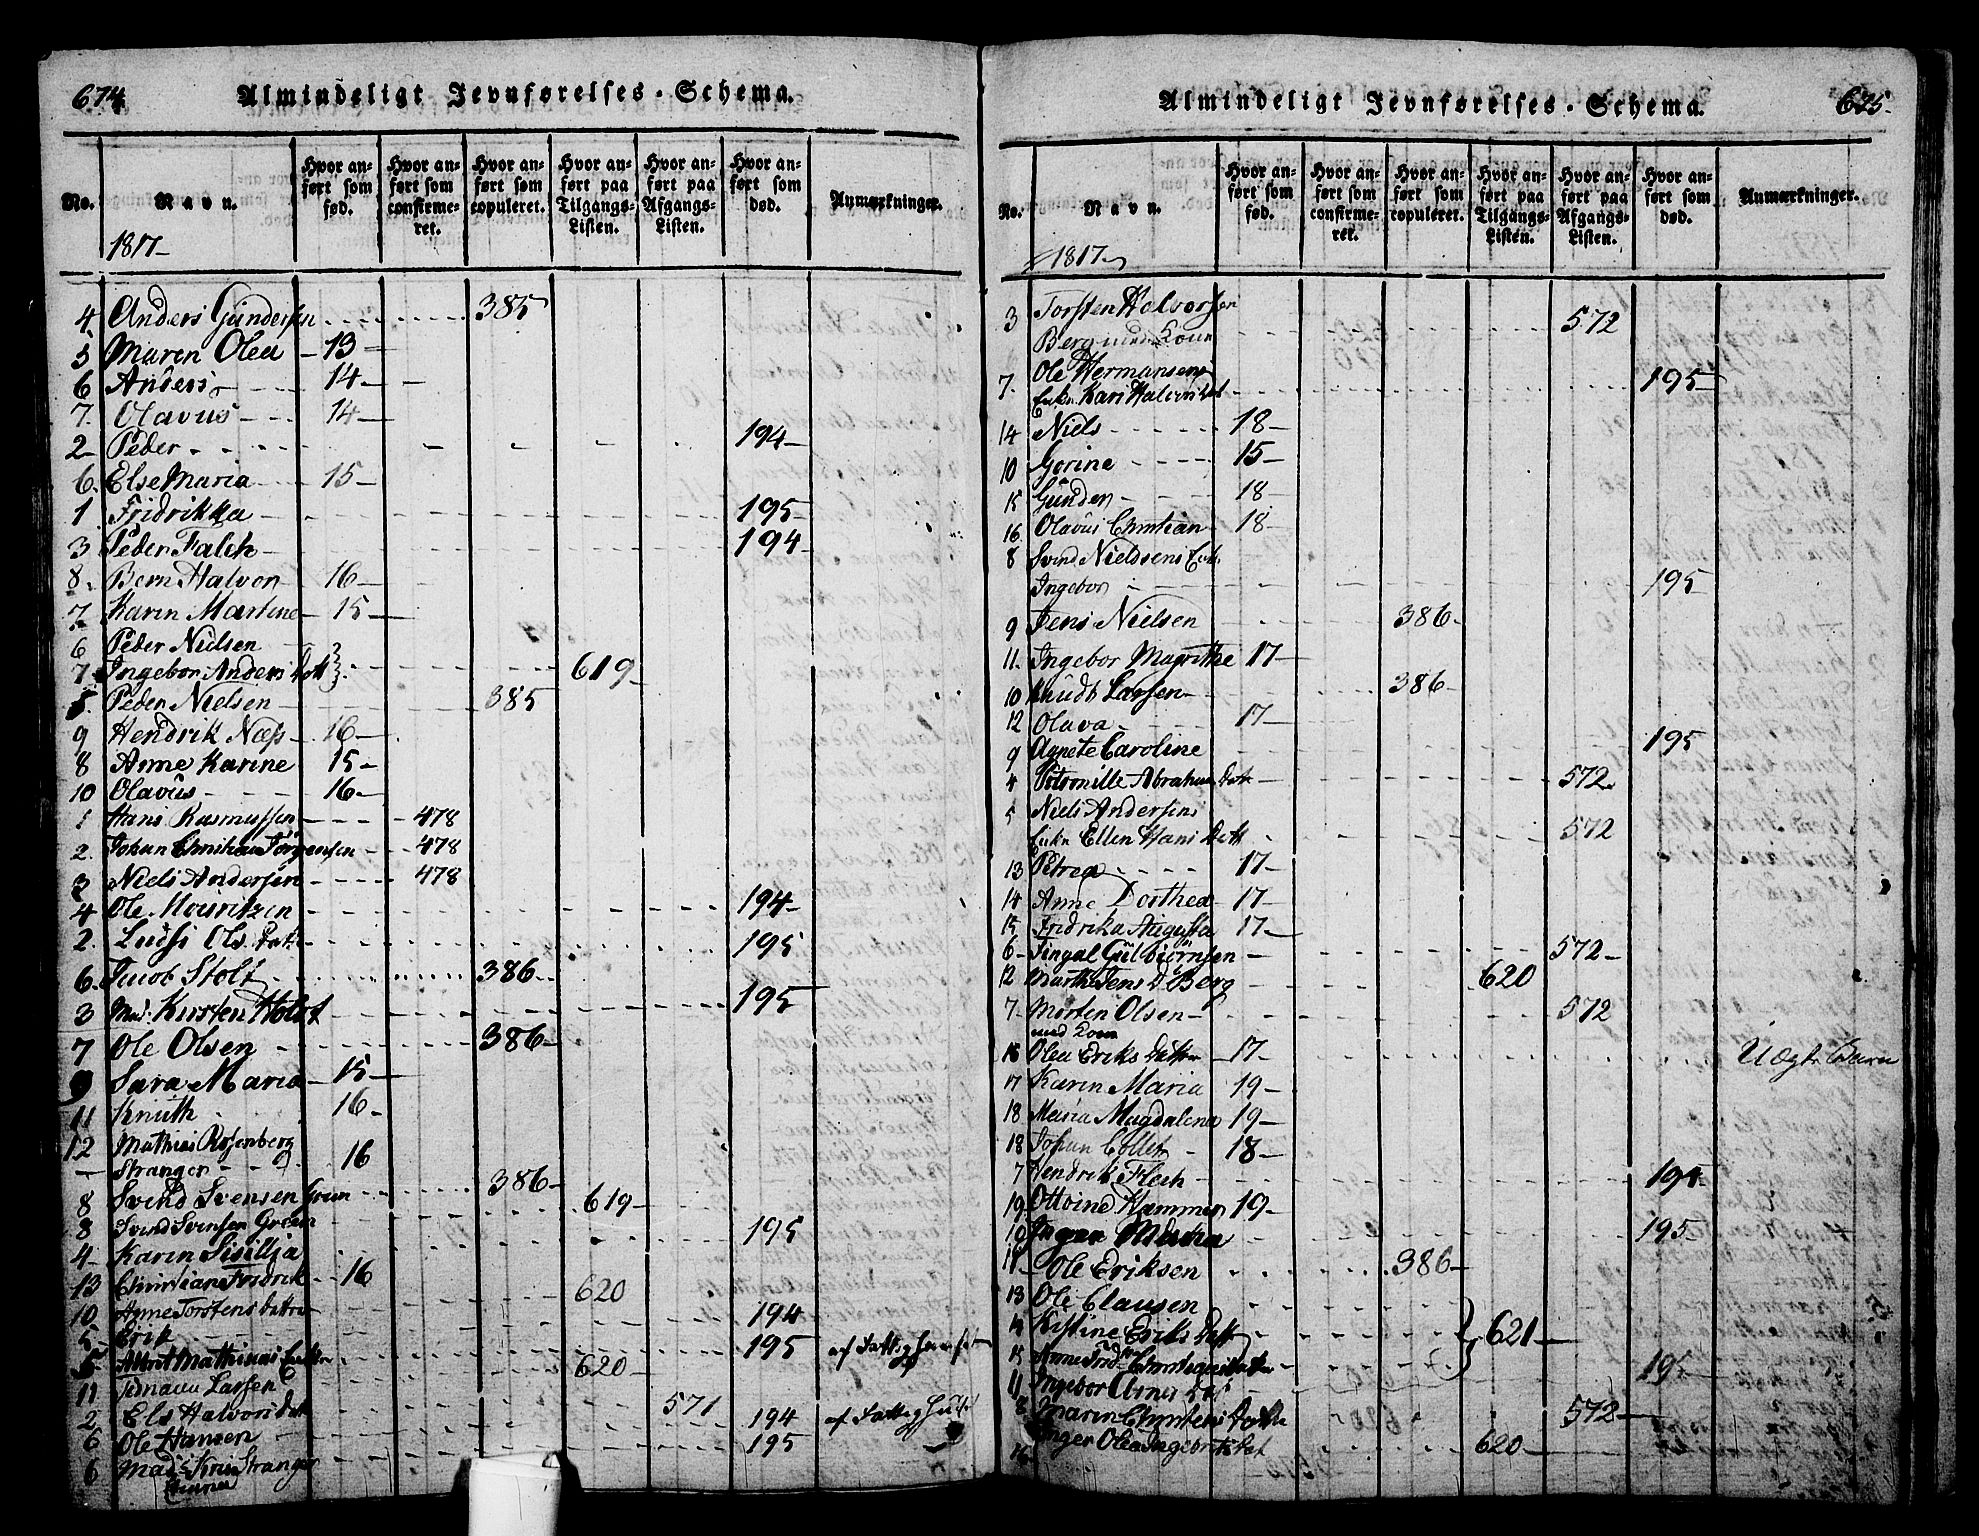 674.
Almindeligt Jevnførelses-Schema.
No.
Navn.
Hvor anført som fød.
Hvor anført som confirmeret.
Hvor anført som copuleret.
Hvor anført paa Tilgangs-Listen.
Hvor anført paa Afgangs-Listen.
Hvor anført som død.
Anmærkninger.
1817
4 Anders Gundersen 385
5 Maren Olea 13
6 Anders 14
7. Olavus 14
2 Peder 194
6. Else Maria 15
1. Fridrikka 195
3 Peder Falch 194
8. Bern Halvor 16
7 Karen Martine 15
6 Peder Nielsen
7 Ingebor Anders Datt 619
5. Peder Nielsen 385
9 Hendrik Næss 16
8 Anne Karine 15
10 Olavus 16
1 Hans Rasmussen 478
2. Johan Christian Jörgensen 478
3 Niels Andersen 478
4 Ole Mouritzen 194
2. Ols Datt 195
6. Jacob Stolt 386
3 Mad. Kirsten Holst 195
7 Ole Olsen 386
9 Sara Maria 15
11 Knuth 16
12 Mathias Rosenberg
Stranger 16
8 Svend Svensen Grøn 386
8 Svend Svensen Grøn 619
4 Karen Sisillia 195
13 Christian Fridrik 16
10 Anne Torstens Datter 620
5 Erik 194
5 Mathias Enke 195 af Fattighuuset
11 Larsen 620
2 Els Halvors Datt 571
6 Ole Hansen 194 af Fattighuset
6 Mad. Stranger 195
675.
Almindeligt Jevnførelses-Schema.
No.
Navn.
Hvor anført som fød.
Hvor anført som confirmeret.
Hvor anført som copuleret.
Hvor anført paa Tilgangs-Listen.
Hvor anført paa Afgangs-Listen.
Hvor anført som død.
Anmærkninger.
1817
3 Torsten Halvorsen
Berg med Kone 572
7. Ole Hermansens
Enke Kari Halvors Dat 195
14 Niels 18
10 Gorine 15
15 Gunder 18
16 Olavus Christian 18
8 Svend Nielsens Enke
Ingebor 195
9 Jens Nielsen 386
11. Ingebor Magrethe 17
10 Knudt Larsen 386
12 Olava 17
9 Agnete Caroline 195
4 Petronille Abrahams Datt 572
5 Niels Andersens
Enke Ellen Hans Datt 572
13 Petrea 17
14 Anne Dorthea 17
15 Fridrika Augusta 17
6 Gulbiörnsen 572
12 Marthe Jens D. Berg 620
7 Morten Olsen
med Kone 572
16 Olea Eriks Datter 17 Uægte Barn
17 Karen Maria 19
18 Maria Magdalena 19
18 Johan Collet 18
7 Hendrik Flech 194
19 Ottoine Hammer 19
10 195
11 Ole Eriksen 386
13 Ole Clausen
14 Kistine Eriks Datt 621
15 Anne Christians Datter
11 Ingebor Arnes Dat 195
8 Maren Christens Datter 572
16 Inger Olea Ingebrits Dat 620